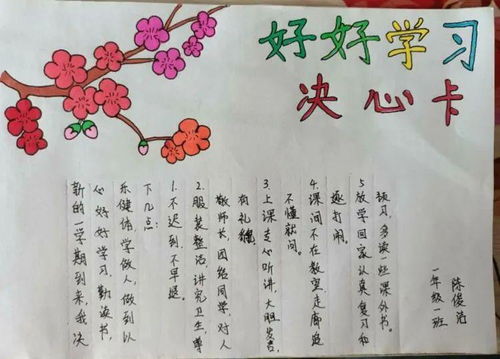 好好学习
决心卡
新的一学期到来,我决
心好好学习,勤读书,
乐健体学做人,做到以
下几点:
1.不迟到不早退。
2.服装整洁,讲究卫生尊
敬师长,团结同学,对人
有礼貌。
3.上课专心听讲,大胆发言,
不懂就问。
4.课间不在教室走廊追
逐打闹。
5.放学回家认真复习和
预习,多读一些课外书。
一年级一班
陈俊